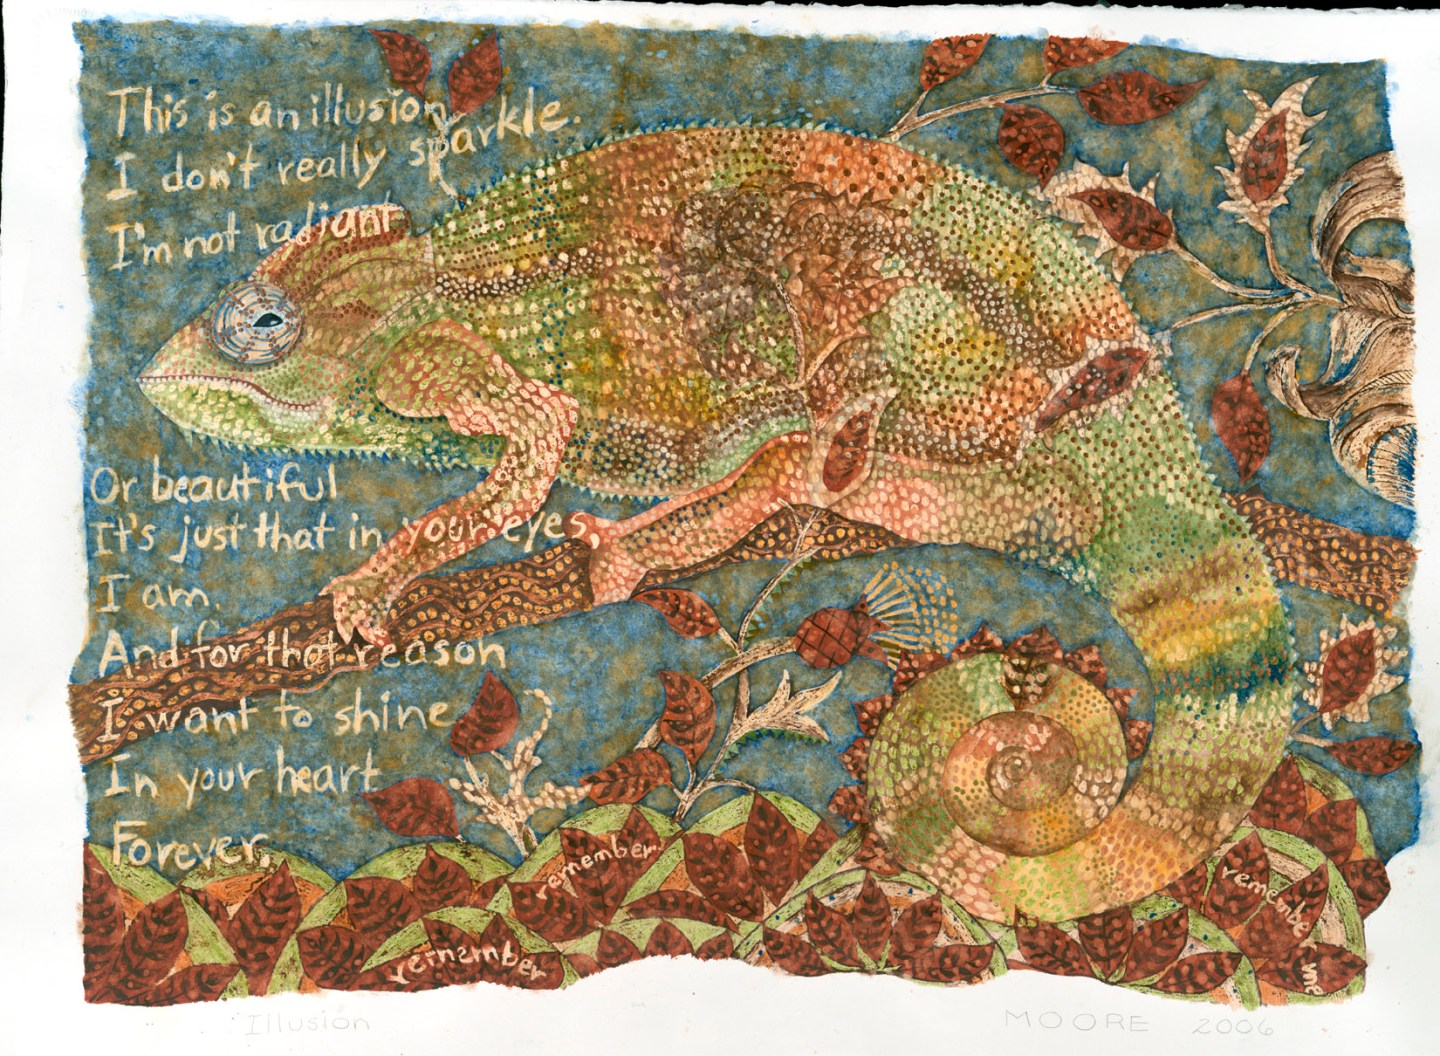 This is an illusion
I don't really sparkle.
I'm not radiant
Or beautiful
It's just that in your eyes,
I am.
And for that reason
I want to shine
In your heart
Forever,
remember
remember
remember
me
Illusion
MOORE 2006